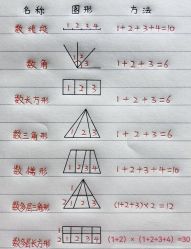 名称 图形 方法
数线段 1 2 3 4 1+2+3+4=10
数角 1 2 3 1+2+3=6
数长方形 1 2 3 1+2+3=6
数三角形 1 2 3 1+2+3=6
数梯形 1 2 3 4 1+2+3+4=10
数多层三角形 1 2 1 2 3 (1+2+3)×2=12
数多层长方形 1 2 3 4 (1+2)×(1+2+3+4)=30